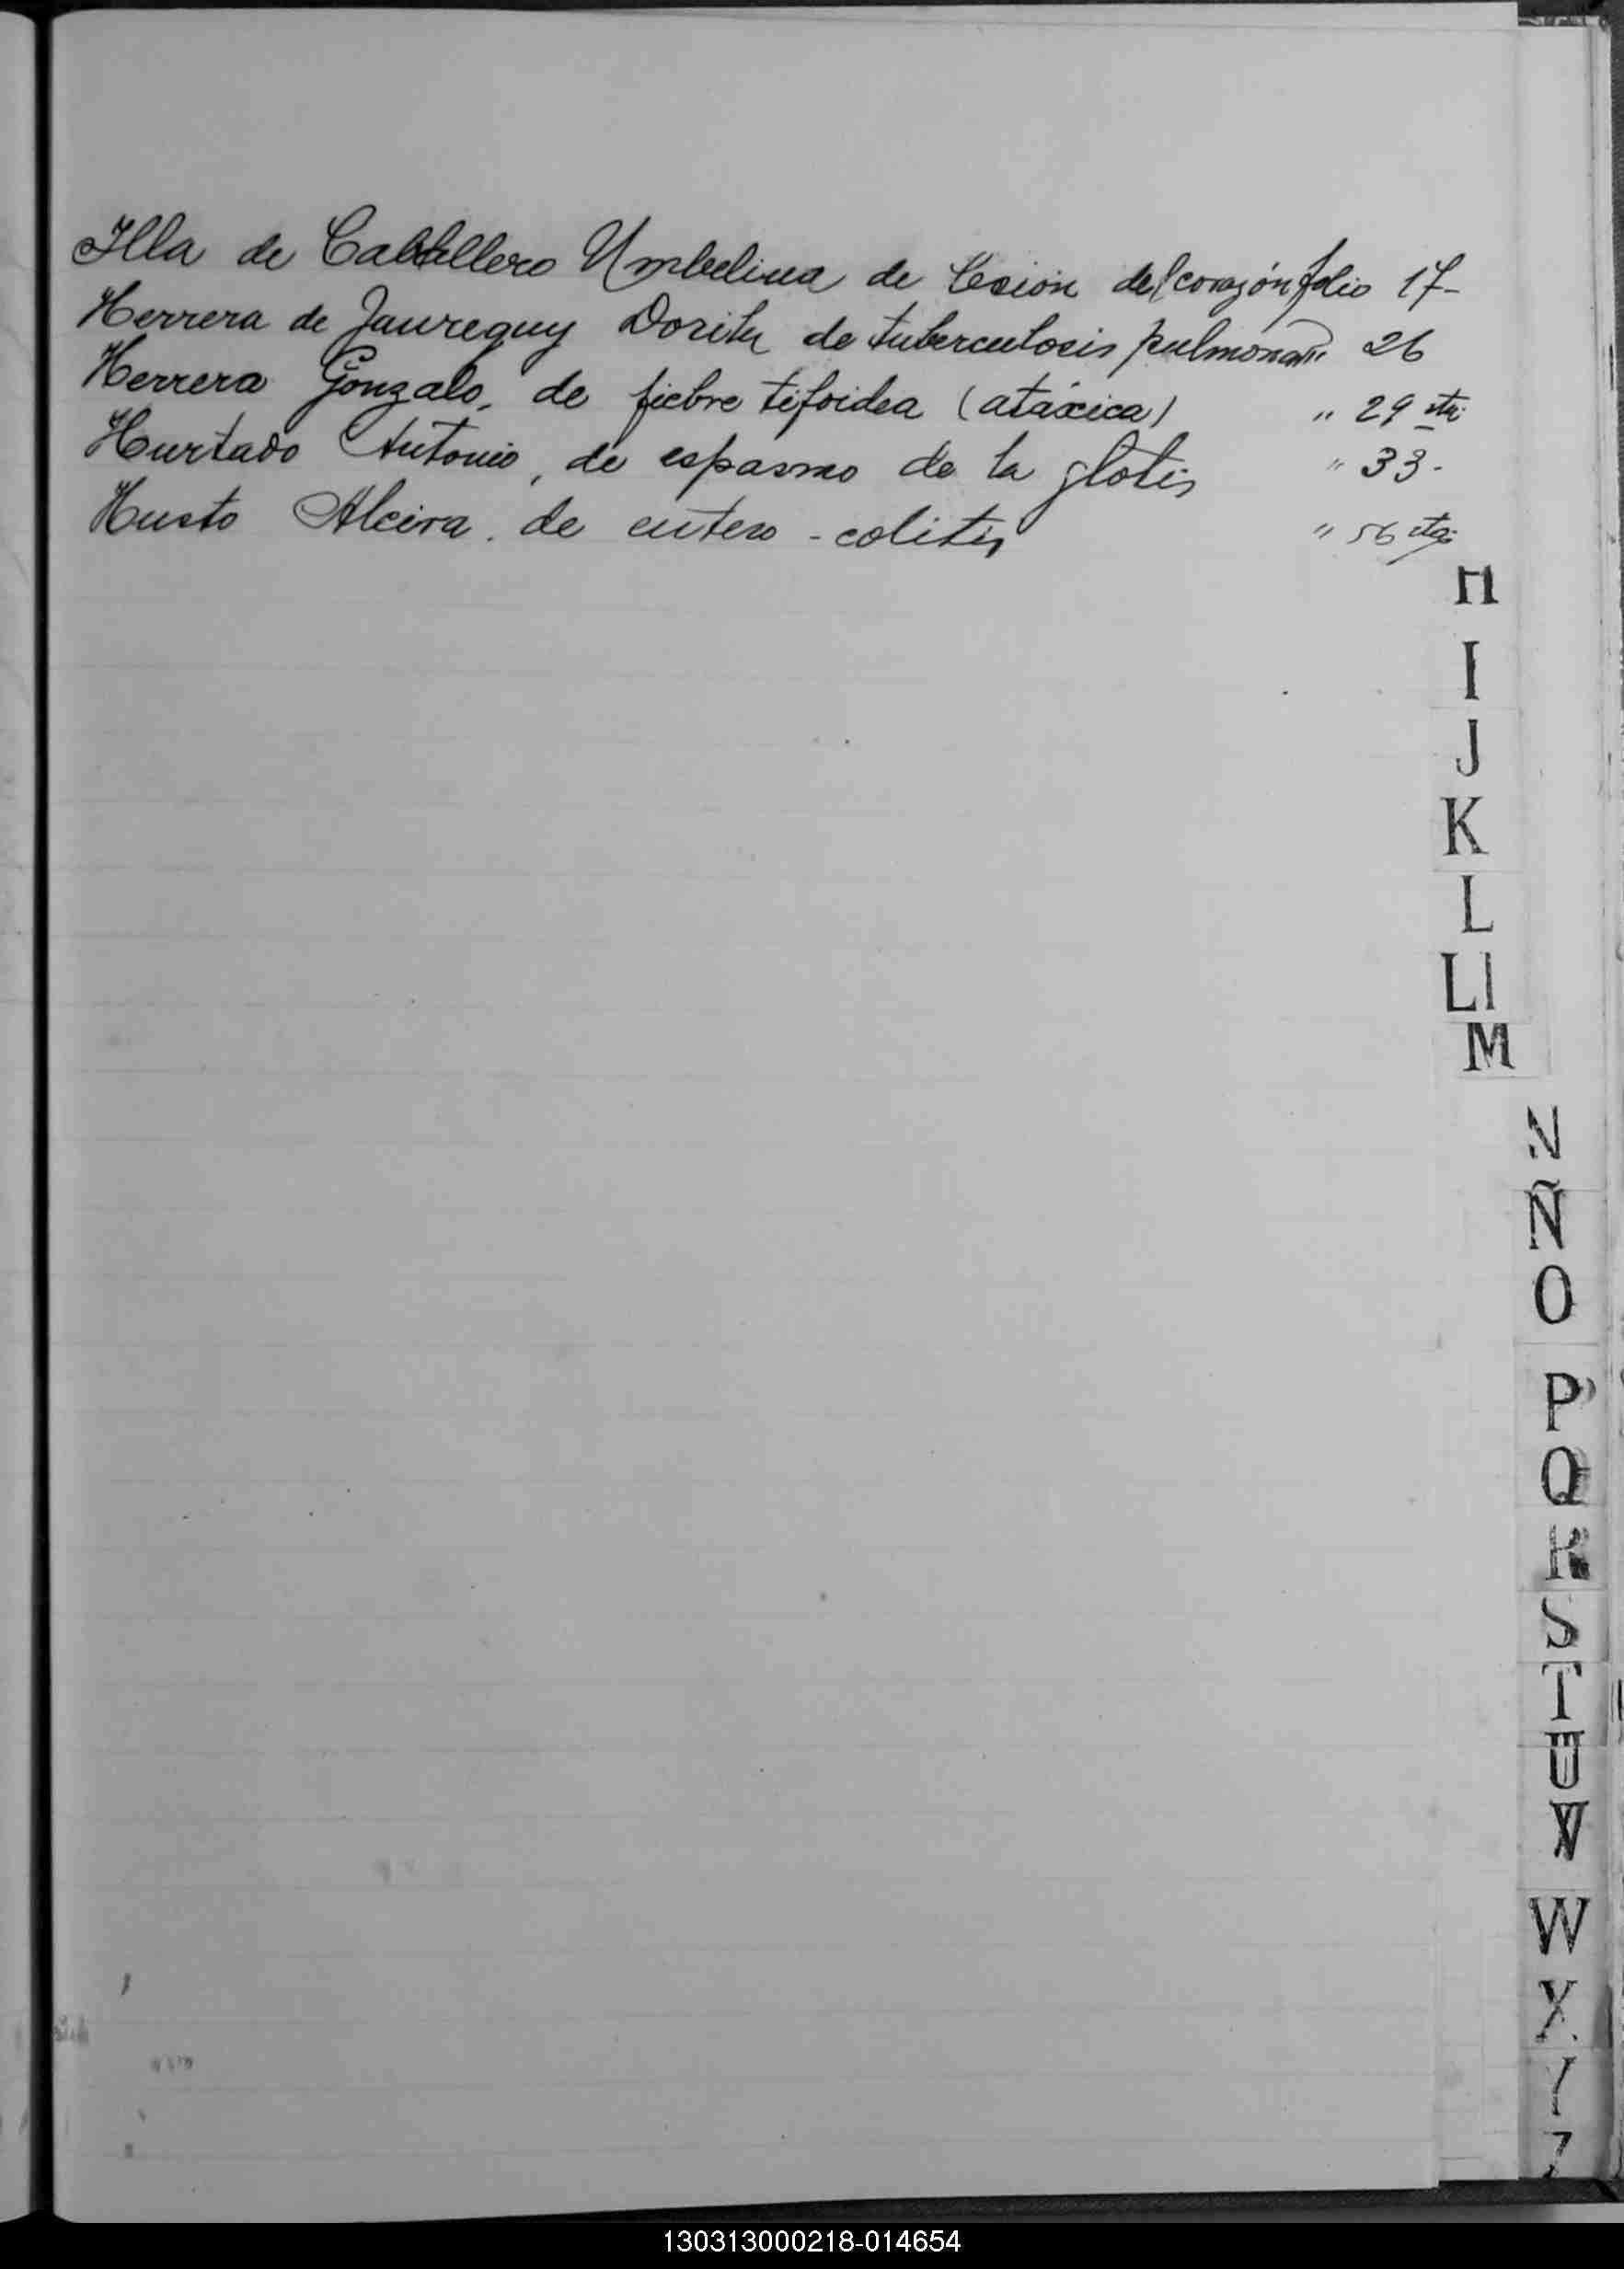 Illa de Caballero Umbelina de lesión del corazón folio 17-
Herrera de Jaureguy Dorila de tuberculosis pulmonar " 26
Herrera Gonzalo, de fiebre tifoidea (atáxica) " 29 vta.
Hurtado Antonio, de espasmo de la glotis " 33-
Husto Alcira. de entero-colitis " 56 vta.
H
I
J
K
L
Ll
M
N
Ñ
O
P
Q
R
S
T
U
V
W
X
Y
Z
130313000218-014654